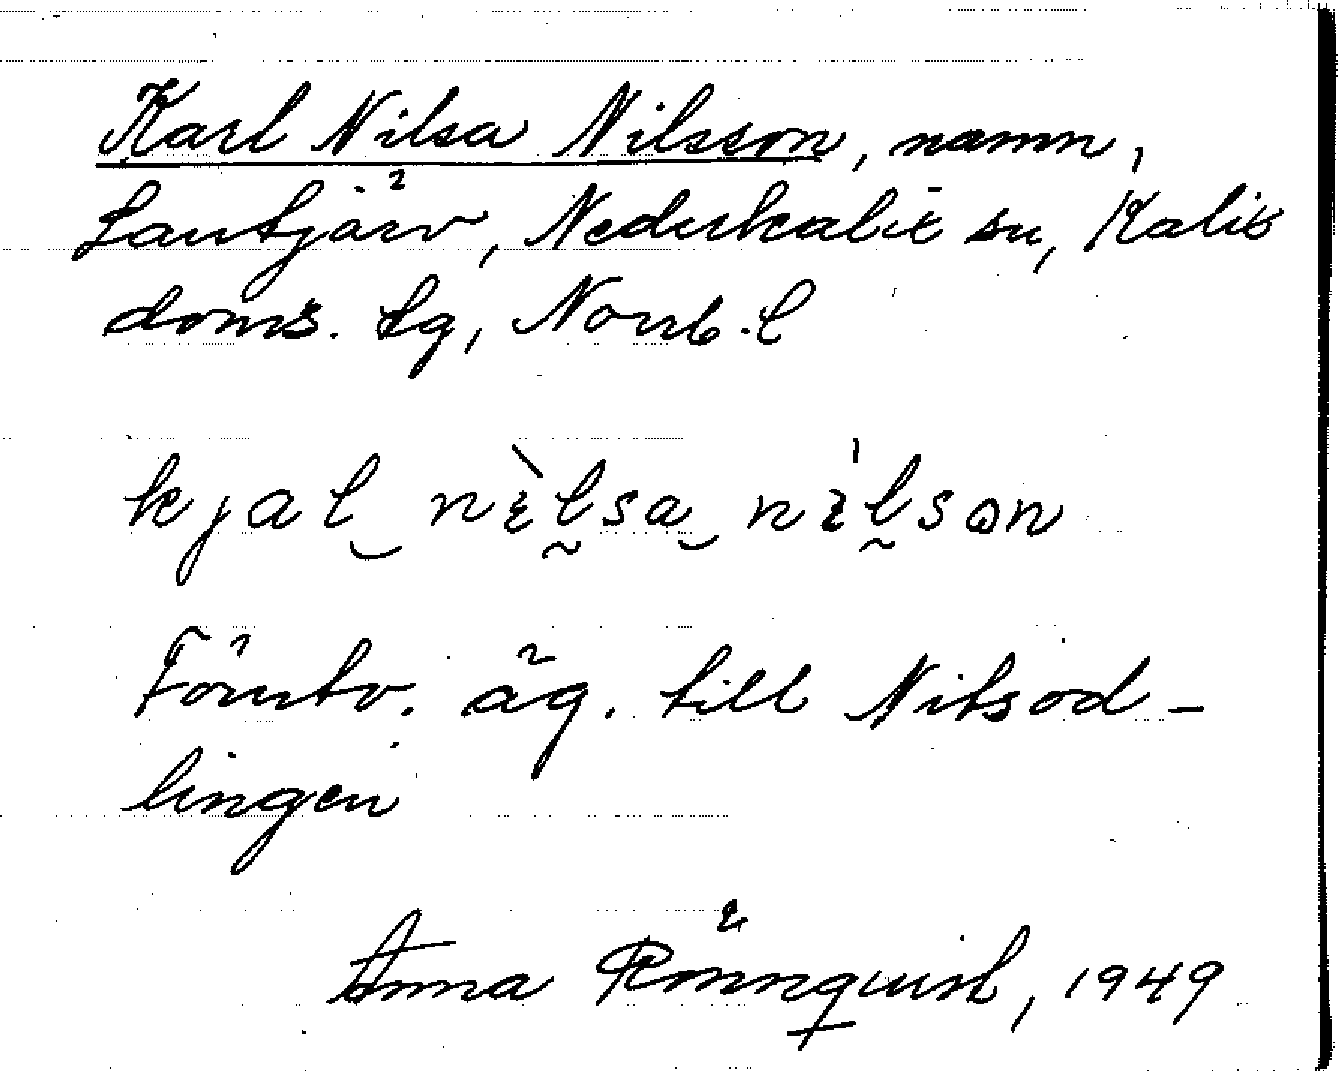 Karl Nilsa Nilsson, namn,
Lantjärv, Nederkalix sn, Kalix
doms. Lg, Norrb. l
kjal nìlsa nìlson
Förutv. äg. till Nilsod-
lingen
Anna Rönnquist, 1949